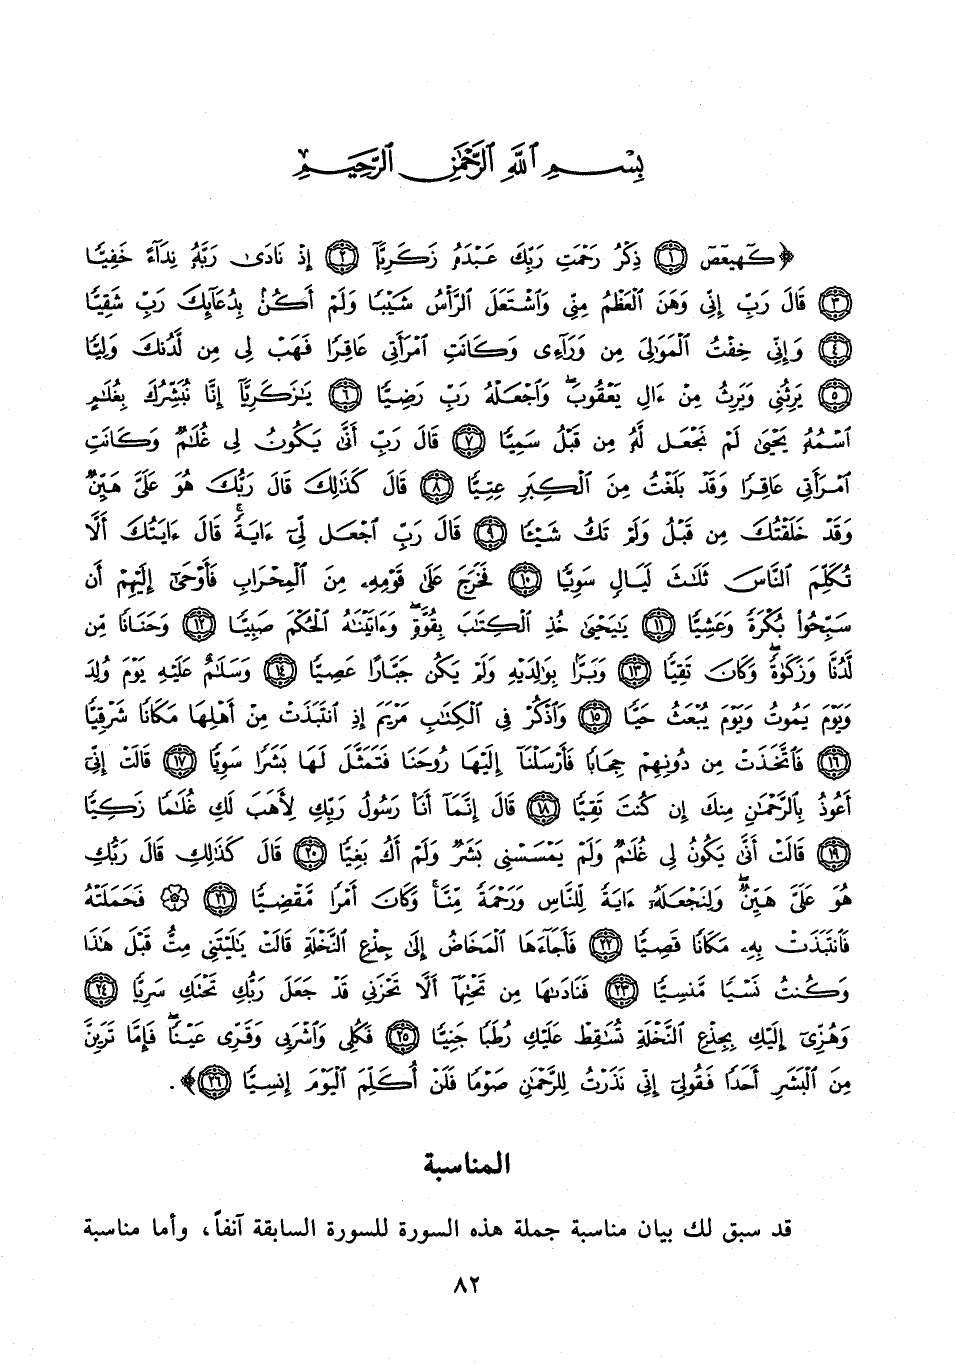 بِسْمِ ٱللَّهِ ٱلرَّحْمَٰنِ ٱلرَّحِيمِ
﴿كٓهيعٓصٓ ١ ذِكْرُ رَحْمَتِ رَبِّكَ عَبْدَهُۥ زَكَرِيَّآ ٢ إِذْ نَادَىٰ رَبَّهُۥ نِدَآءً خَفِيًّا
٣ قَالَ رَبِّ إِنِّى وَهَنَ ٱلْعَظْمُ مِنِّى وَٱشْتَعَلَ ٱلرَّأْسُ شَيْبًا وَلَمْ أَكُنۢ بِدُعَآئِكَ رَبِّ شَقِيًّا
٤ وَإِنِّى خِفْتُ ٱلْمَوَٰلِىَ مِن وَرَآءِى وَكَانَتِ ٱمْرَأَتِى عَاقِرًا فَهَبْ لِى مِن لَّدُنكَ وَلِيًّا
٥ يَرِثُنِى وَيَرِثُ مِنْ ءَالِ يَعْقُوبَ ۖ وَٱجْعَلْهُ رَبِّ رَضِيًّا ٦ يَٰزَكَرِيَّآ إِنَّا نُبَشِّرُكَ بِغُلَٰمٍ
ٱسْمُهُۥ يَحْيَىٰ لَمْ نَجْعَل لَّهُۥ مِن قَبْلُ سَمِيًّا ٧ قَالَ رَبِّ أَنَّىٰ يَكُونُ لِى غُلَٰمٌ وَكَانَتِ
ٱمْرَأَتِى عَاقِرًا وَقَدْ بَلَغْتُ مِنَ ٱلْكِبَرِ عِتِيًّا ٨ قَالَ كَذَٰلِكَ قَالَ رَبُّكَ هُوَ عَلَىَّ هَيِّنٌ
وَقَدْ خَلَقْتُكَ مِن قَبْلُ وَلَمْ تَكُ شَيْـًٔا ٩ قَالَ رَبِّ ٱجْعَل لِّىٓ ءَايَةً ۚ قَالَ ءَايَتُكَ أَلَّا
تُكَلِّمَ ٱلنَّاسَ ثَلَٰثَ لَيَالٍ سَوِيًّا ١٠ فَخَرَجَ عَلَىٰ قَوْمِهِۦ مِنَ ٱلْمِحْرَابِ فَأَوْحَىٰٓ إِلَيْهِمْ أَن
سَبِّحُوا۟ بُكْرَةً وَعَشِيًّا ١١ يَٰيَحْيَىٰ خُذِ ٱلْكِتَٰبَ بِقُوَّةٍ ۖ وَءَاتَيْنَٰهُ ٱلْحُكْمَ صَبِيًّا ١٢ وَحَنَانًا مِّن
لَّدُنَّا وَزَكَوٰةً ۖ وَكَانَ تَقِيًّا ١٣ وَبَرًّۢا بِوَٰلِدَيْهِ وَلَمْ يَكُن جَبَّارًا عَصِيًّا ١٤ وَسَلَٰمٌ عَلَيْهِ يَوْمَ وُلِدَ
وَيَوْمَ يَمُوتُ وَيَوْمَ يُبْعَثُ حَيًّا ١٥ وَٱذْكُرْ فِى ٱلْكِتَٰبِ مَرْيَمَ إِذِ ٱنتَبَذَتْ مِنْ أَهْلِهَا مَكَانًا شَرْقِيًّا
١٦ فَٱتَّخَذَتْ مِن دُونِهِمْ حِجَابًا فَأَرْسَلْنَآ إِلَيْهَا رُوحَنَا فَتَمَثَّلَ لَهَا بَشَرًا سَوِيًّا ١٧ قَالَتْ إِنِّىٓ
أَعُوذُ بِٱلرَّحْمَٰنِ مِنكَ إِن كُنتَ تَقِيًّا ١٨ قَالَ إِنَّمَآ أَنَا۠ رَسُولُ رَبِّكِ لِأَهَبَ لَكِ غُلَٰمًا زَكِيًّا
١٩ قَالَتْ أَنَّىٰ يَكُونُ لِى غُلَٰمٌ وَلَمْ يَمْسَسْنِى بَشَرٌ وَلَمْ أَكُ بَغِيًّا ٢٠ قَالَ كَذَٰلِكِ قَالَ رَبُّكِ
هُوَ عَلَىَّ هَيِّنٌ ۖ وَلِنَجْعَلَهُۥٓ ءَايَةً لِّلنَّاسِ وَرَحْمَةً مِّنَّا ۚ وَكَانَ أَمْرًا مَّقْضِيًّا ٢١ ۞ فَحَمَلَتْهُ
فَٱنتَبَذَتْ بِهِۦ مَكَانًا قَصِيًّا ٢٢ فَأَجَآءَهَا ٱلْمَخَاضُ إِلَىٰ جِذْعِ ٱلنَّخْلَةِ قَالَتْ يَٰلَيْتَنِى مِتُّ قَبْلَ هَٰذَا
وَكُنتُ نَسْيًا مَّنسِيًّا ٢٣ فَنَادَىٰهَا مِن تَحْتِهَآ أَلَّا تَحْزَنِى قَدْ جَعَلَ رَبُّكِ تَحْتَكِ سَرِيًّا ٢٤
وَهُزِّىٓ إِلَيْكِ بِجِذْعِ ٱلنَّخْلَةِ تُسَٰقِطْ عَلَيْكِ رُطَبًا جَنِيًّا ٢٥ فَكُلِى وَٱشْرَبِى وَقَرِّى عَيْنًا ۖ فَإِمَّا تَرَيِنَّ
مِنَ ٱلْبَشَرِ أَحَدًا فَقُولِىٓ إِنِّى نَذَرْتُ لِلرَّحْمَٰنِ صَوْمًا فَلَنْ أُكَلِّمَ ٱلْيَوْمَ إِنسِيًّا ٢٦﴾.
المناسبة
قد سبق لك بيان مناسبة جملة هذه السورة للسورة السابقة آنفاً، وأما مناسبة
٨٢